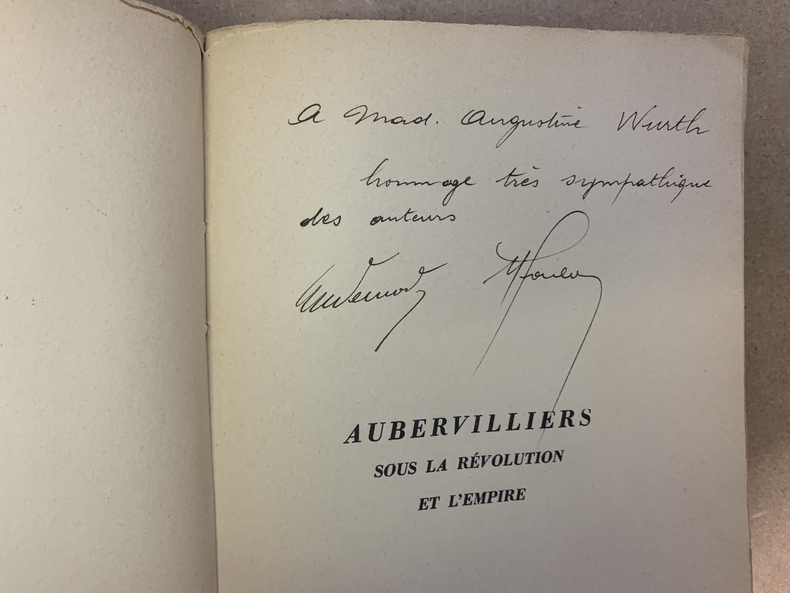 A Mad. Augustine Wurth
hommage très sympathique
des auteurs
AUBERVILLIERS
SOUS LA RÉVOLUTION
ET L'EMPIRE